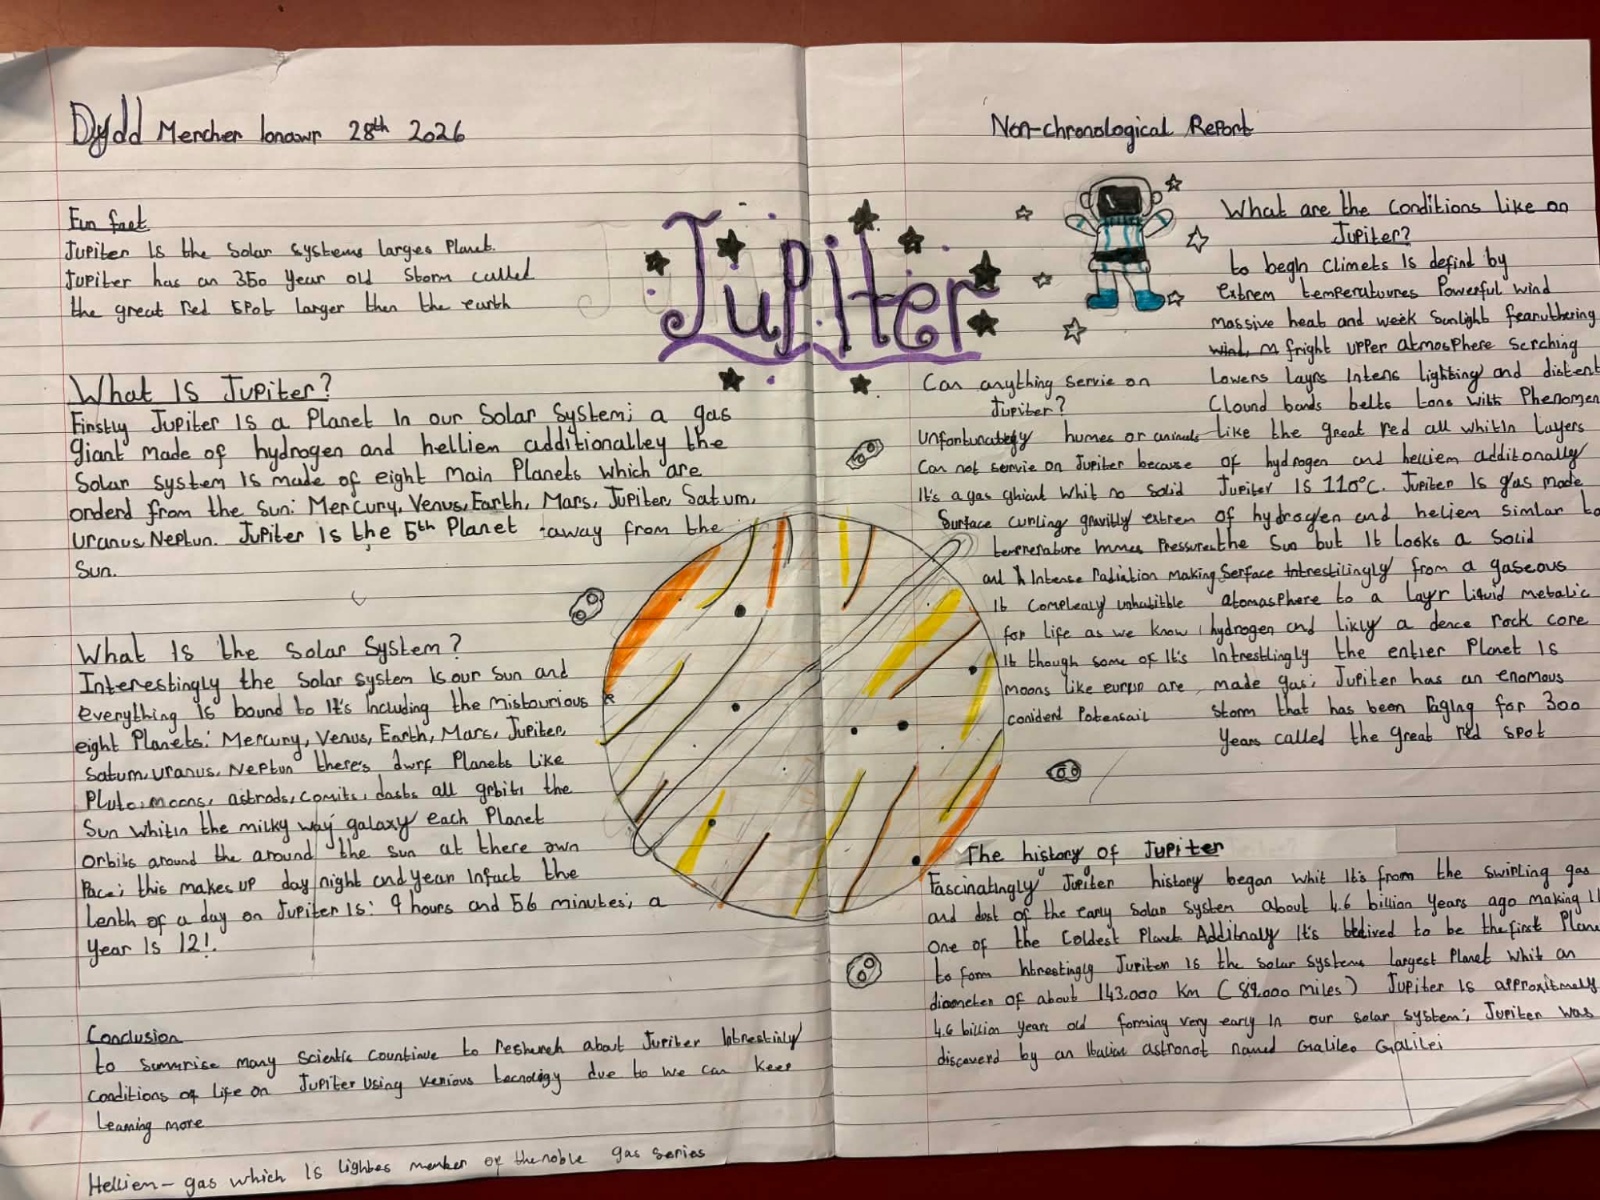 Dydd Mercher Ionawr 28th 2026
Non-chronological Report
Jupiter
Fun fact
Jupiter Is the Solar Systems larges Planet.
Jupiter has an 350 year old Storm called
the great Red Spot larger then the earth
What Is Jupiter?
Firstly Jupiter Is a Planet In our Solar System; a gas
Giant made of hydrogen and helliem additionalley the
Solar system Is made of eight main Planets which are
orderd from the sun: Mercury, Venus, Earth, Mars, Jupiter, Saturn,
Uranus, Neptun. Jupiter is the 5th Planet away from the
Sun.
What Is the Solar System?
Interestingly the Solar system Is our Sun and
everything Is bound to It's Including the mistourious
eight Planets: Mercury, Venus, Earth, Mars, Jupiter,
Saturn, Uranus, Neptun there's dwrf Planets like
Pluto, moons, astrods, comits, dasts all orbits the
Sun Whitin the milky way galaxy each Planet
orbits around the around the sun at there own
Pace; this makes up day night and year Infact the
lenth of a day on Jupiter Is: 9 hours and 56 minutes; a
Year Is 12!.
Conclusion
to Summrise many Scientic countinue to reshurch about Jupiter
conditions of life on Jupiter Using verious tecnology due to we can keep
learning more
Helliem - gas which Is lightes member of the noble gas series
Can anything servie on
Jupiter?
Unfortunately humes or animals
Can not servie on Jupiter because
It's a gas ghiant Whit no Solid
Surface curling gravitiy extrem
Immes Pressure
and Intense radiation making
It complealy unhabitble
for life as we know
It though some of It's
moons like europ are
conident Potensail
What are the conditions like on
Jupiter?
to begin climets Is defind by
extrem temperatuures Powerful wind
massive heat and week Sunlight
wind, fright upper atmosphere Serching
Lowers layrs Intens lighting and distent
Clound bands belts Lons With Phenomen
like the great red all whitin layers
of hydrogen and helliem additonally
Jupiter Is 110°C. Jupiter Is gas made
of hydrogen and heliem simlar to
the Sun but It looks a Solid
Serface Intrestilingly from a gaseous
atomasphere to a layr liquid metalic
hydrogen and likly a dence rock core
Intrestlingly the entier Planet Is
made gas; Jupiter has an enomous
Storm that has been Raging for 300
Years called the great red spot
The history of Jupiter
Fascinatingly Jupiter history began whit It's from the swirling gas
and dost of the early Solar System about 4.6 billion Years ago making It
One of the Coldest Planet Additnaly It's beleived to be the first Plane
to form Intrestingly Jupiter Is the Solar Systems largest Planet whit an
diameter of about 143.000 km (89.000 miles) Jupiter Is approxitmely
4.6 billion years old forming very early In our Solar system; Jupiter was
discoverd by an Italian astronot named Galileo Galilei